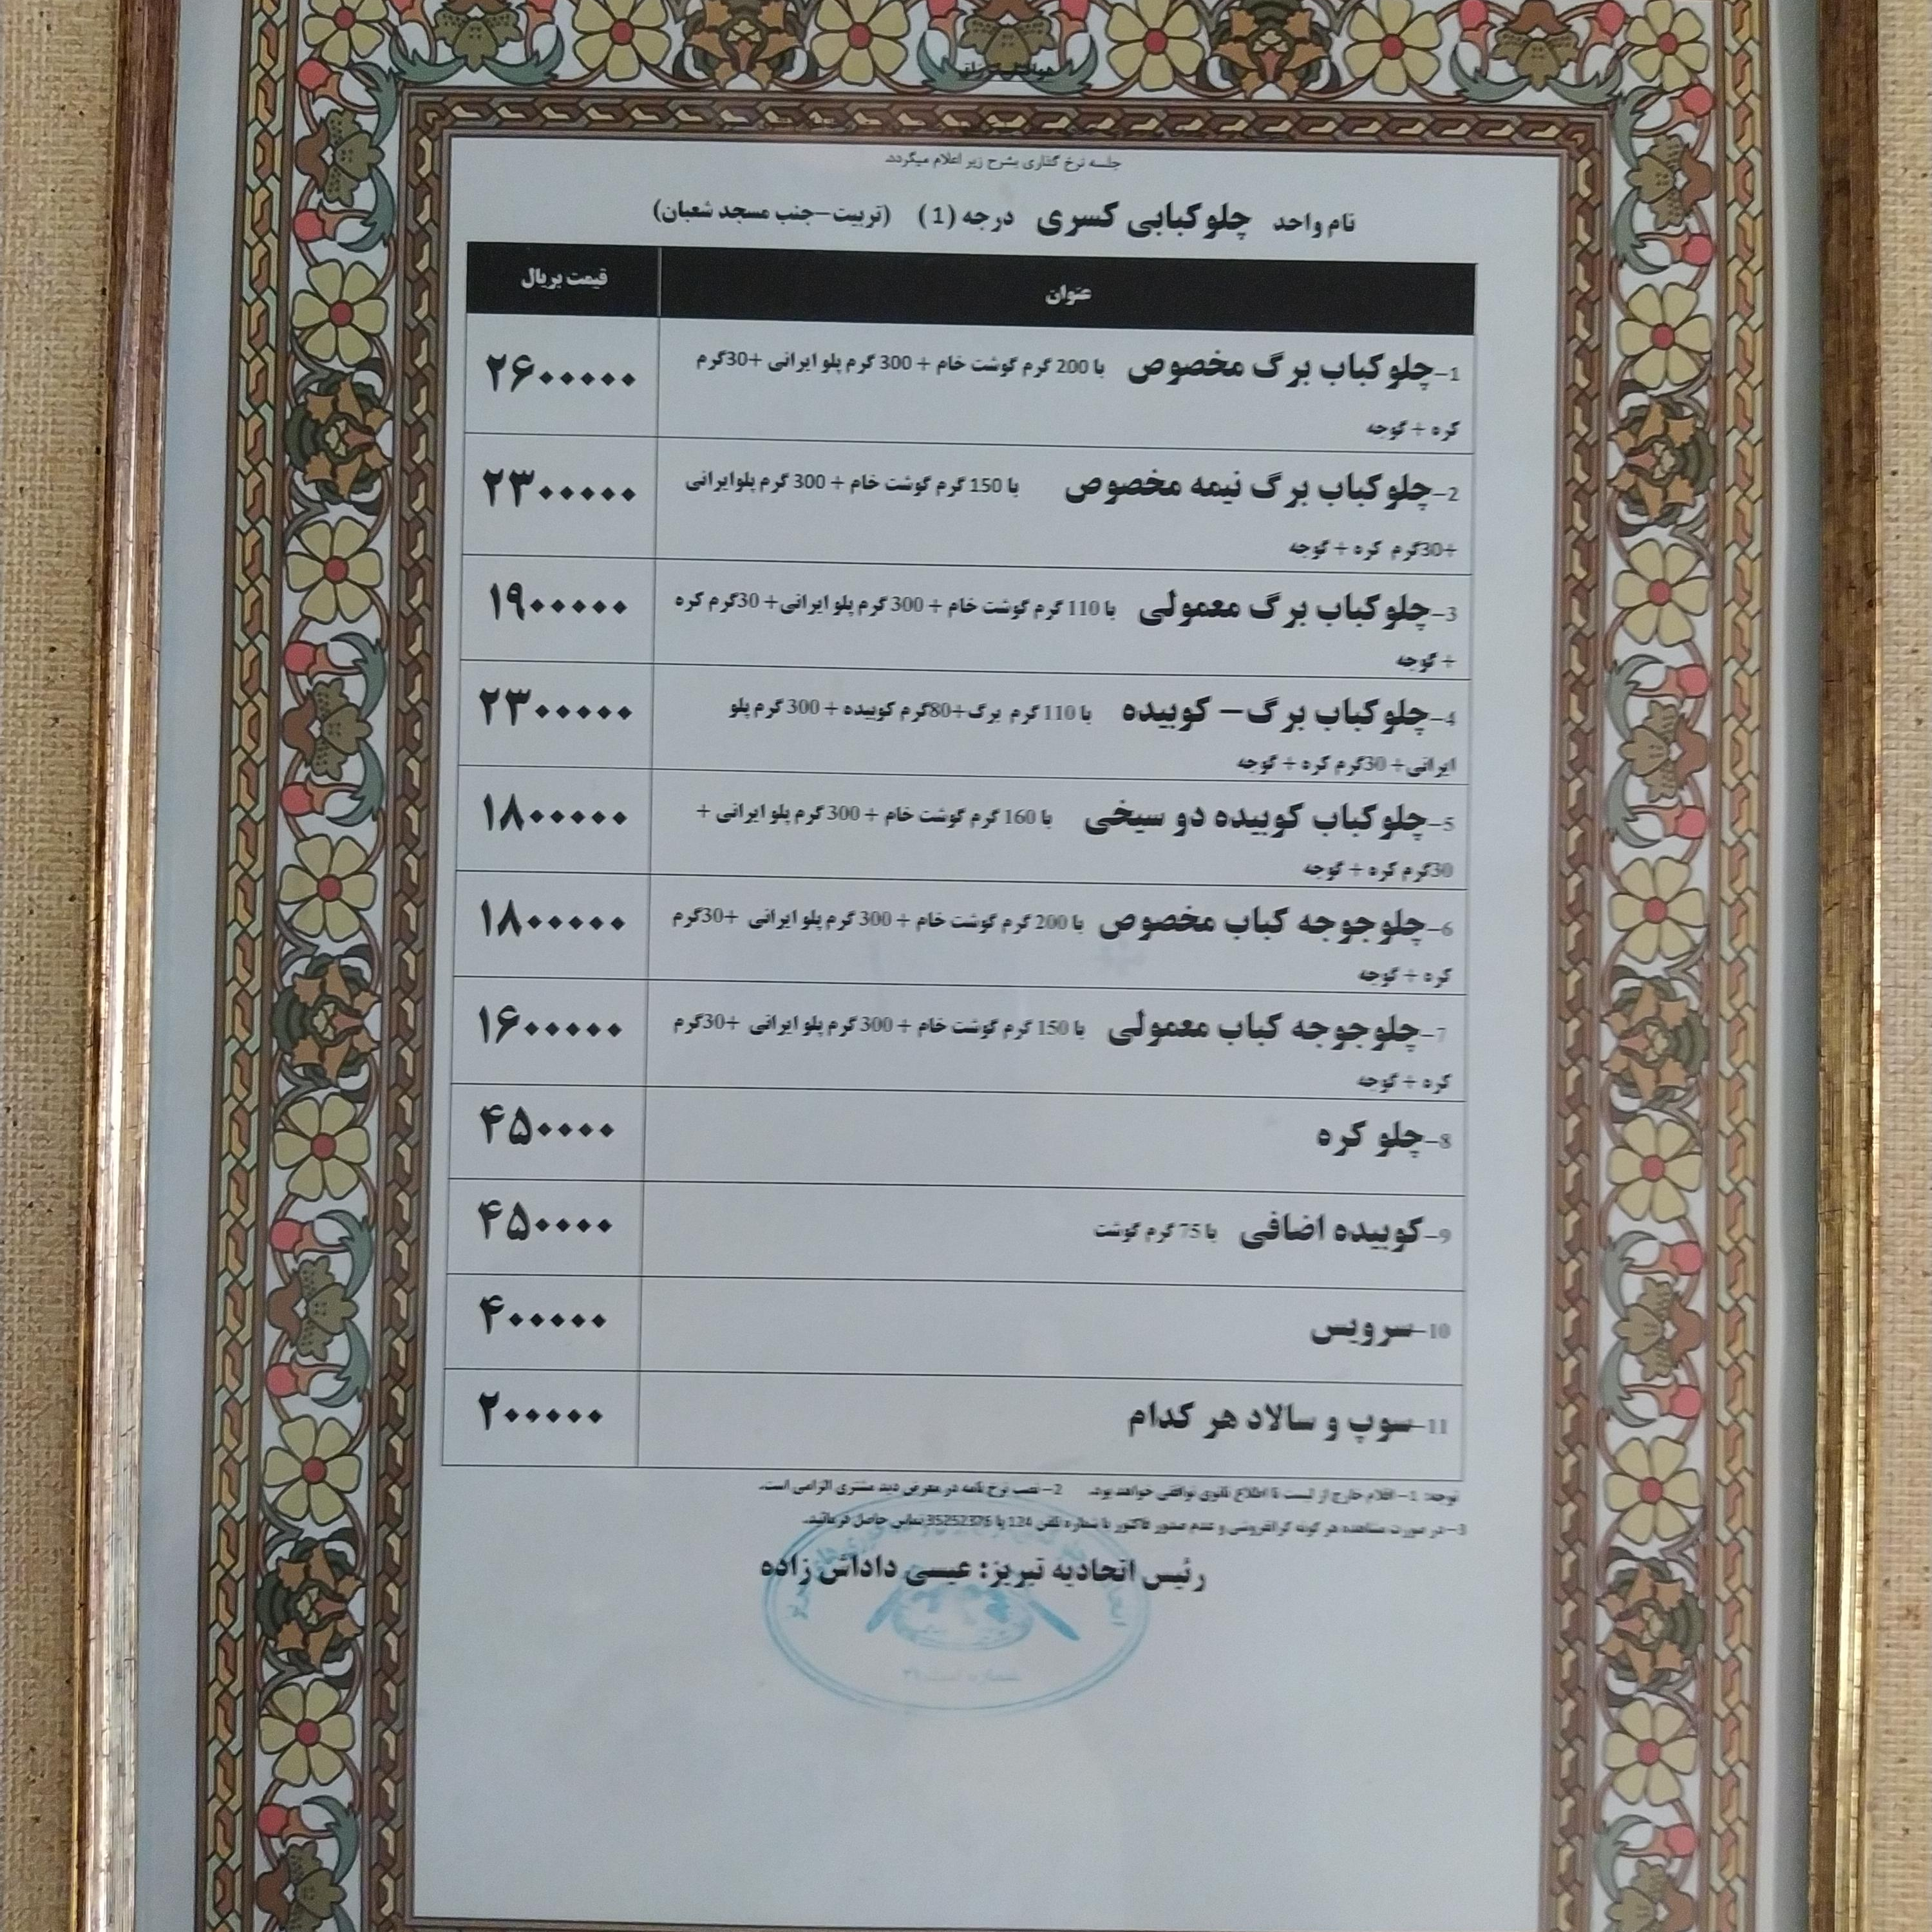 جلسه نرخ گذاری بشرح زیر اعلام میگردد
نام واحد چلوکبابی کسری درجه (1) (تربیت-جنب مسجد شعبان)
عنوان قیمت بریال
1-چلوکباب برگ مخصوص با 200 گرم گوشت خام + 300 گرم پلو ایرانی +30گرم ۲۶۰۰۰۰۰
کره + گوجه
2-چلوکباب برگ نیمه مخصوص با 150 گرم گوشت خام + 300 گرم پلوایرانی ۲۳۰۰۰۰۰
+30گرم کره + گوجه
3-چلوکباب برگ معمولی با 110 گرم گوشت خام + 300 گرم پلو ایرانی+ 30گرم کره ۱۹۰۰۰۰۰
+ گوجه
4-چلوکباب برگ- کوبیده با 110 گرم برگ+80گرم کوبیده + 300 گرم پلو ۲۳۰۰۰۰۰
ایرانی+ 30گرم کره + گوجه
5-چلوکباب کوبیده دو سیخی با 160 گرم گوشت خام + 300 گرم پلو ایرانی + ۱۸۰۰۰۰۰
30گرم کره + گوجه
6-چلوجوجه کباب مخصوص با 200 گرم گوشت خام + 300 گرم پلو ایرانی +30گرم ۱۸۰۰۰۰۰
کره + گوجه
7-چلوجوجه کباب معمولی با 150 گرم گوشت خام + 300 گرم پلو ایرانی +30گرم ۱۶۰۰۰۰۰
کره + گوجه
8-چلو کره ۴۵۰۰۰۰
9-کوبیده اضافی با 75 گرم گوشت ۴۵۰۰۰۰
10-سرویس ۴۰۰۰۰۰
11-سوپ و سالاد هر کدام ۲۰۰۰۰۰
توجه: 1- اقلام خارج از لیست تا اطلاع ثانوی توافقی خواهد بود. 2- نصب نرخ نامه در معرض دید مشتری الزامی است.
3- در صورت مشاهده هر گونه گرانفروشی و عدم صدور فاکتور با شماره تلفن 124 یا 35252376 تماس حاصل فرمائید.
رئیس اتحادیه تبریز: عیسی داداش زاده